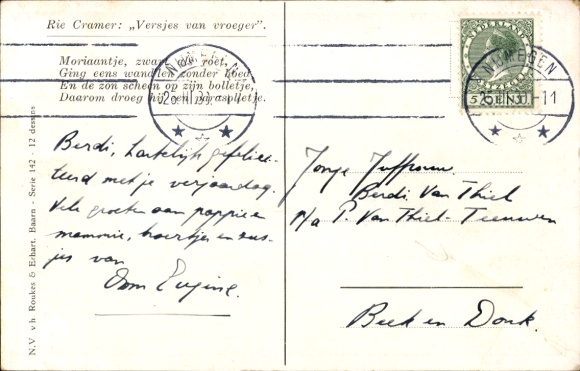 Rie Cramer: „Versjes van vroeger".
Moriaantje, zwart als roet,
Ging eens wandlen zonder hoed
En de zon scheen op zijn bolletje,
Daarom droeg hij een parasolletje.
NIJMEGEN
NEDERLAND
5 CENT
NIJMEGEN
Berdi, hartelijk gefelici-
teerd met je verjaardag.
Vele groeten aan pappie en
mammie, broertjes en zus-
jes van
Oom Eugine.
Jonge Juffrouw
Berdi Van Thiel
p/a P. Van Thiel-Teeuwen
Beek en Donk.
N.V. v/h Roukes & Erhart, Baarn - Serie 142 - 12 dessins